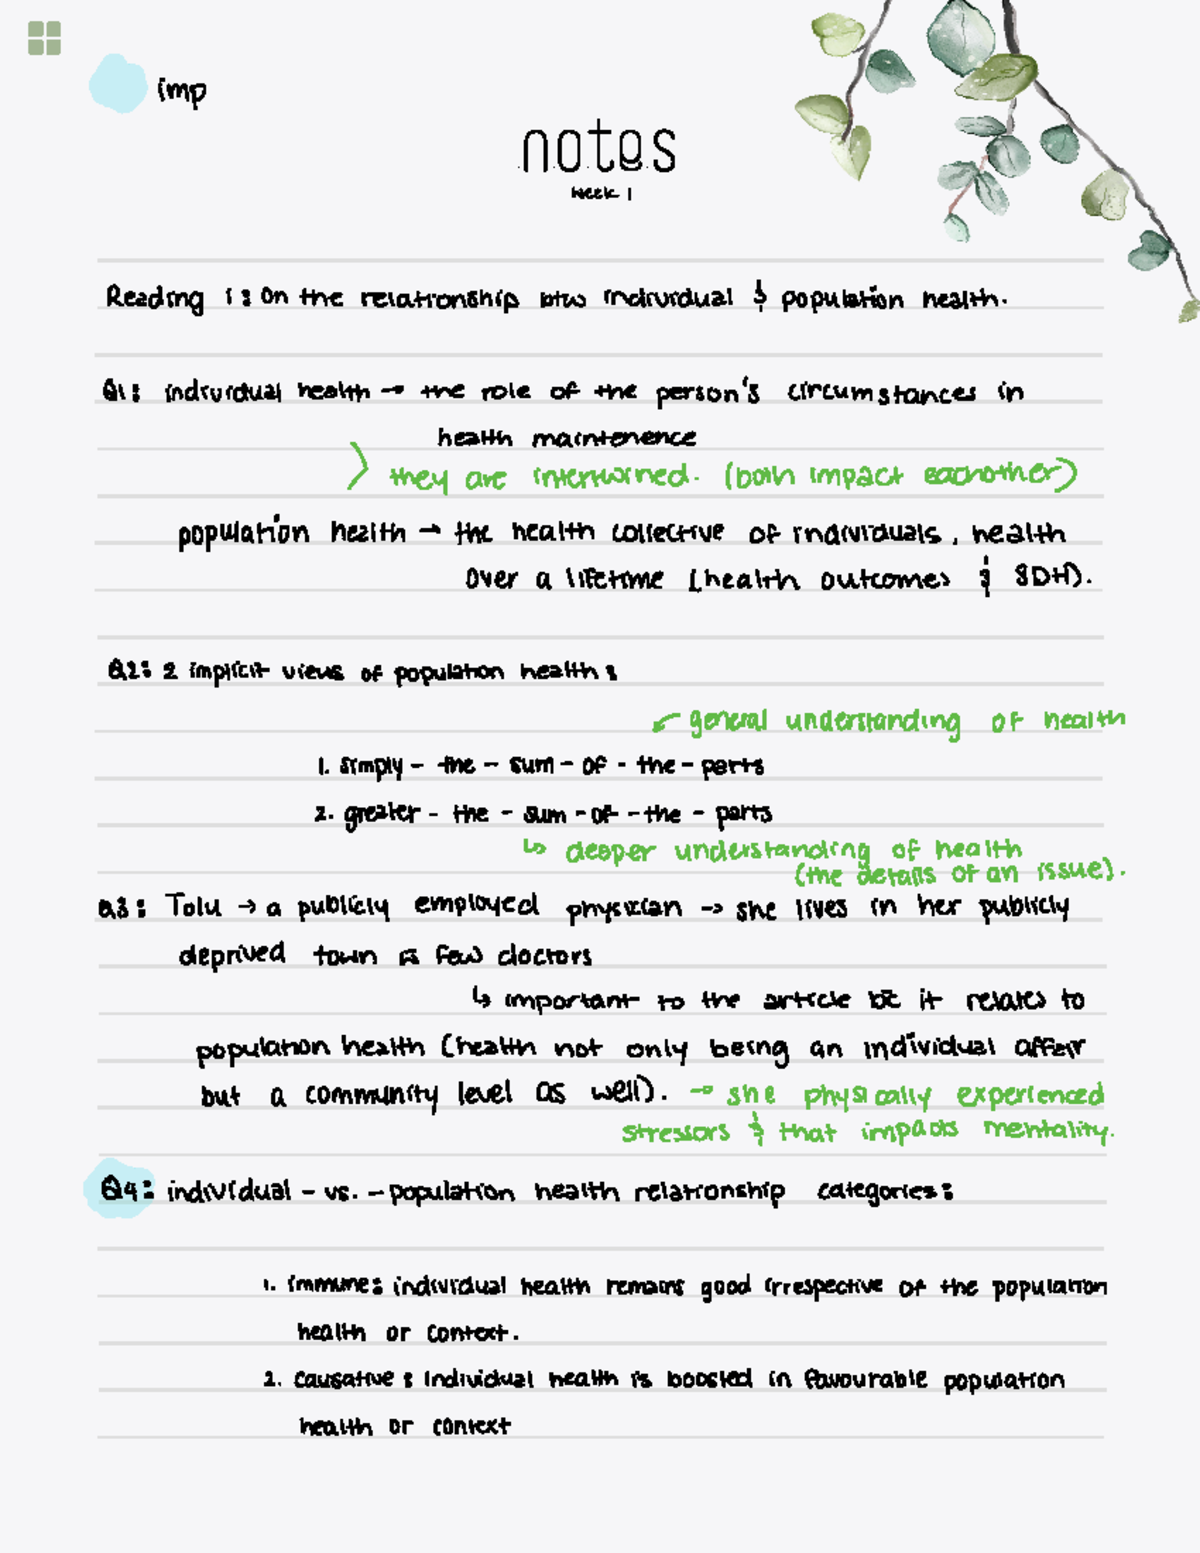 imp
notes
week 1
Reading 1: On the relationship btw individual & population health.
Q1: individual health → the role of the person's circumstances in
health maintenence
they are intertwined. (both impact eachother)
population health → the health collective of individuals, health
over a lifetime (health outcomes & SDH).
Q2: 2 implicit views of population health:
↙ general understanding of health
1. simply - the - sum - of - the - parts
2. greater - the - sum - of - the - parts
↳ deeper understanding of health
(the details of an issue).
Q3: Tolu → a publicly employed physician → she lives in her publicly
deprived town few doctors
↳ important to the article bc it relates to
population health (health not only being an individual affair
but a community level as well). → she physically experienced
stressors & that impacts mentality.
Q4: individual - vs. - population health relationship categories:
1. immune: individual health remains good irrespective of the population
health or context.
2. causative: individual health is boosted in favourable population
health or context